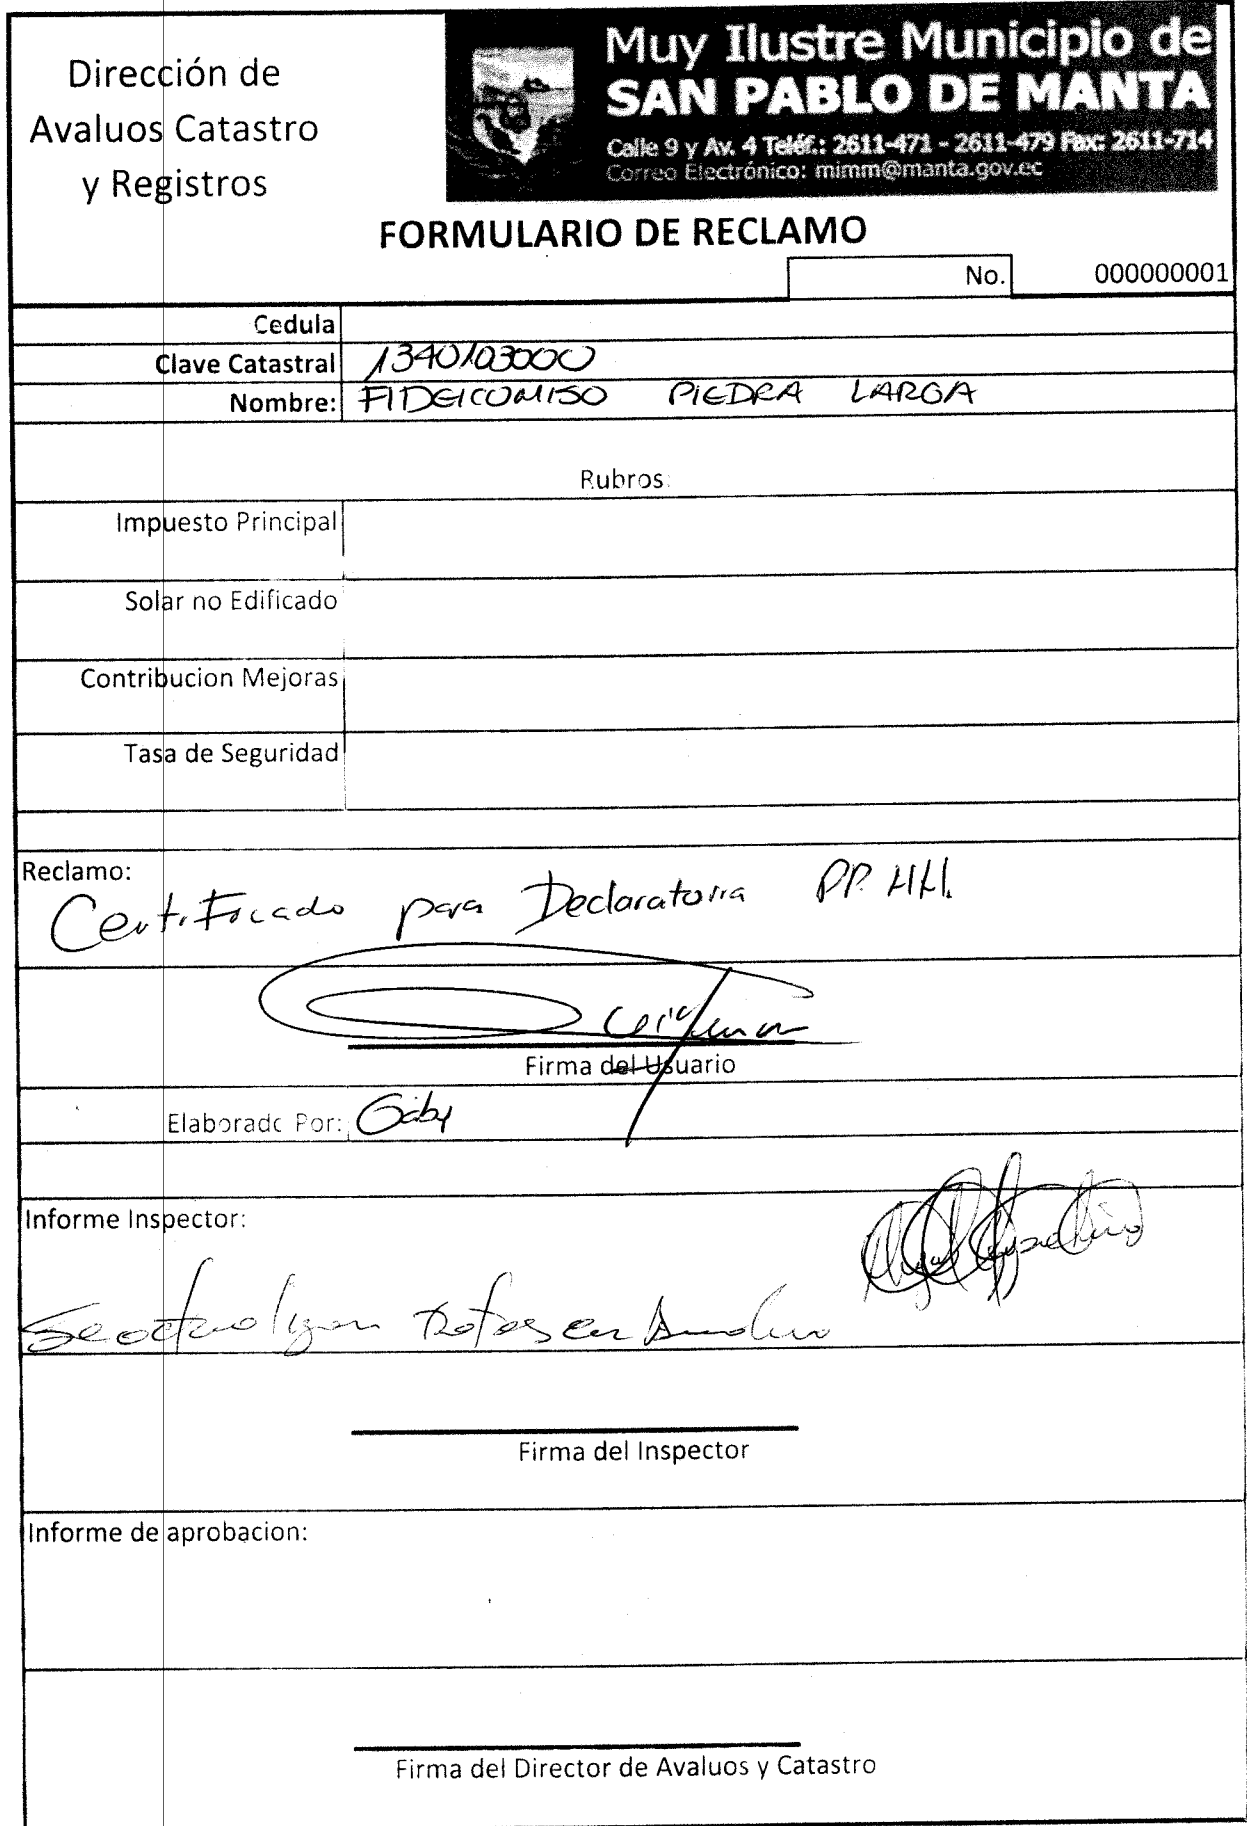 Dirección de
Avaluos Catastro
y Registros
Muy Ilustre Municipio de
SAN PABLO DE MANTA
Calle 9 y Av. 4 Teléf.: 2611-471 - 2611-479 Fax: 2611-714
Correo Electrónico: mimm@manta.gov.ec
FORMULARIO DE RECLAMO
No. 000000001
Cedula
Clave Catastral 1340103000
Nombre: FIDEICOMISO PIEDRA LARGA
Rubros:
Impuesto Principal
Solar no Edificado
Contribucion Mejoras
Tasa de Seguridad
Reclamo:
Certificado para Declaratoria PP.HH.
Firma del Usuario
Elaborado Por: Gaby
Informe Inspector:
Firma del Inspector
Informe de aprobacion:
Firma del Director de Avaluos y Catastro